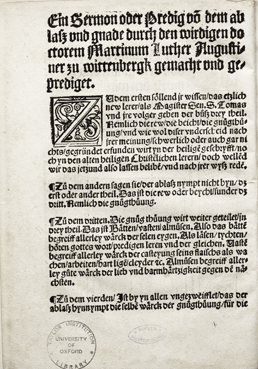 Ein Sermon oder Predig võ dem ab
laſz vnd gnade durch den wirdigen do
ctorem Martinum Luther Auguſti
ner zu wittenbergk gemacht vnd ge
prediget.
Zu dem erſten ſöllend ir wiſſen das etzlich
new lerer/ als Magiſter Sen. S. Tomas
vnd ire volger geben der bůſz drey theil.
Nemlich die rew/die beicht/die gnůgthů
ung/vnd wie wol diſer vnderſcheid nach
jrer meinung/ſchwerlich oder auch gar ni
chts/gegründet erfunden wirt yn der heiligē geſchryfft/no
ch yn den alten heiligen Chriſtelichen lerern/ doch
wir das jetzund alſo laſſen belibē/vnd nach jrer wyſz redē.
¶ Zů dem andern ſagen ſie/der ablaſz nympt nicht hyn/
erſt oder ander theil. Das iſt die rew oder beycht/ſunder
dritt. Nemlich die gnůgthůung.
¶ Zů dem dritten. Die gnůgthůung wirt weiter geteilet/in
drey theil. Das iſt Bättẽ/vaſten/almůſen. Alſo das bättē
begreiff allerley wärck der ſelen eygen. Als läſen/tychten/
hören gottes wort/predigen leren vnd der gleichen. Vaſtē
begreiff allerley wärck der caſteyung ſeins flaiſchs als wa
chen/arbeiten/hart ligē/cleyder ꝛc. Almůſen begreiff aller
ley gůte wärck der lieb vnd barmhärtzigkeit gegen dē nä
chſten.
¶ Zů dem vierden/ Iſt by yn allen vngezweiffelt/das der
ablaſz hynnympt die ſelbē wärck der gnůgthůung/ für die
TAYLOR INSTITUTION
UNIVERSITY
OF OXFORD
LIBRARY